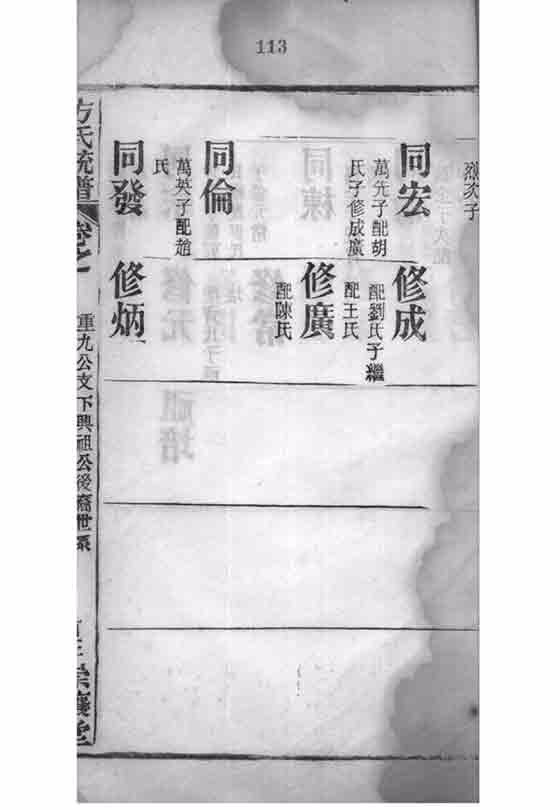 113
烈次子
同宏
萬先子配胡
氏子修成廣
同倫
萬英子配趙
氏
同發
修成
配劉氏子繼
配王氏
修廣
配陳氏
修炳
方氏統譜
卷之
重九公支下興祖公後裔世系